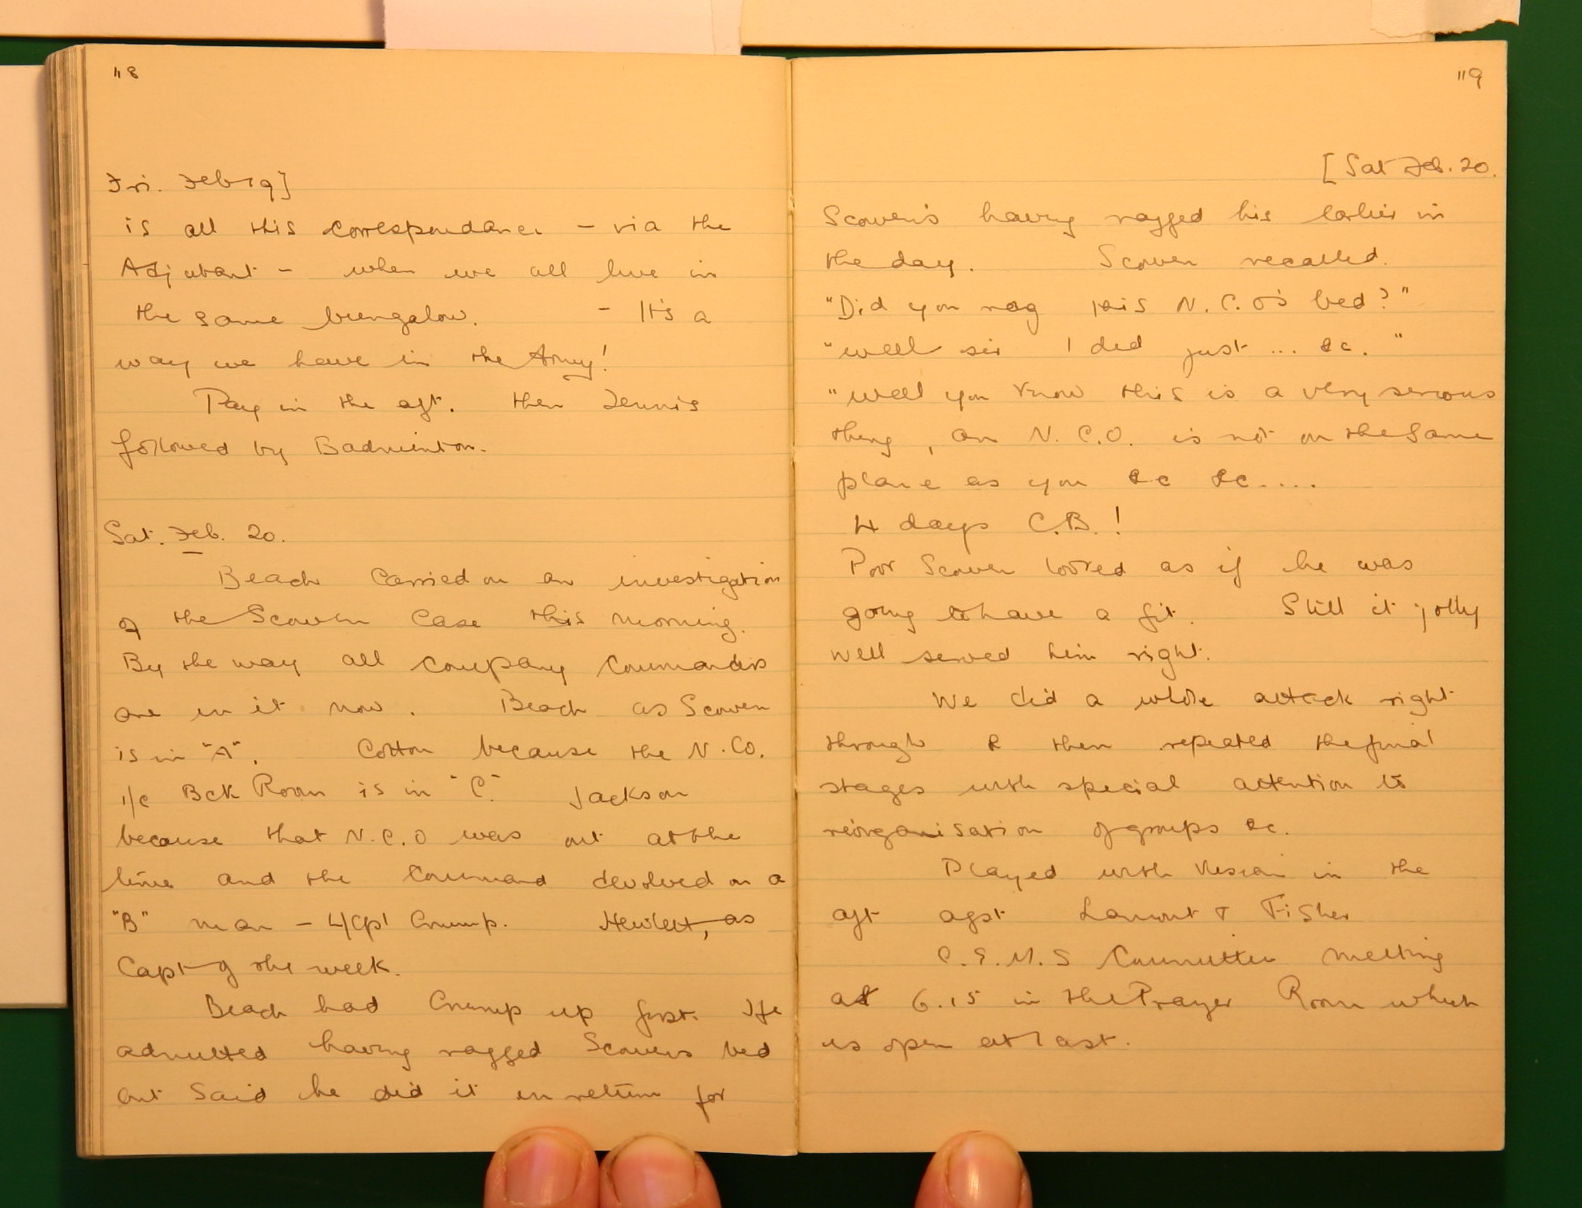 118
Fri. Feb 19]
is all this correspondance – via the
Adjutant – when we all live in
the same bungalow. – It's a
way we have in the Army!
Pay in the aft. then Tennis
followed by Badminton.
Sat. Feb. 20.
Beach carried on an investigation
of the Scoven case this morning.
By the way all company commanders
are in it now. Beach as Scoven
is in "A". Cotton because the N.CO.
i/c Bck Room is in "C". Jackson
because that N.C.O was out at the
time and the command devolved on a
"B" man – L/Cpl Crump. Hewlett, as
Capt of the week.
Beach had Crump up first. He
admitted having ragged Scovens bed
but said he did it in return for
119
[Sat Feb. 20.
Scoven's having ragged his earlier in
the day. Scoven recalled.
"Did you rag this N.C.O's bed?"
"well sir I did just ... &c."
"well you know this is a very serious
thing, an N.C.O. is not on the same
plane as you &c &c....
4 days C.B.!
Poor Scoven looked as if he was
going to have a fit. Still it jolly
well served him right.
We did a whole attack right
through & then repeated the final
stages with special attention to
reorganisation of groups &c.
Played with in the
aft agst Lamont & Fisher
C.E.M.S Committee meeting
at 6.15 in the Prayer Room which
is open at last.